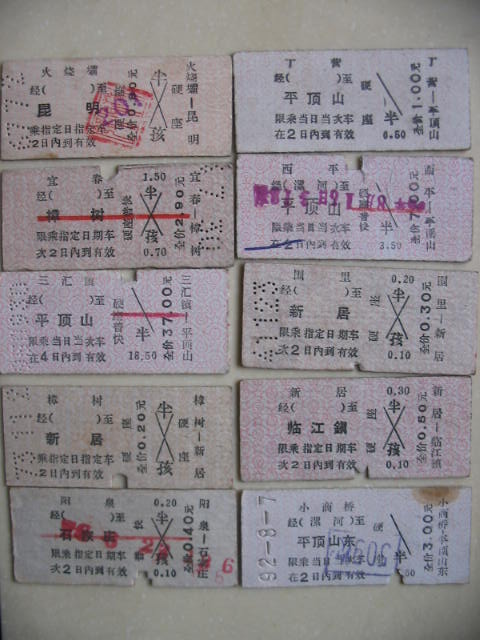 火烧壩
经( )至
昆 明
乘指定日指定车
2日内到有效
半
孩
硬座
火烧壩—昆明
丁 营
经( )至
平顶山
限乘当日当次车
在2日内到有效
硬座
半
0.50
全价1.00元
丁营—平顶山
宜 春
经( )至
樟 树
限乘指定日期车
次2日内到有效
1.50
半
孩
0.70
硬座普快
全价2.90元
宜春—樟树
西 平
经(漯河)至
平顶山
限乘当日当次车
在2日内到有效
硬座普快
半
3.50
全价7.00元
西平—平顶山
三汇镇
经( )至
平顶山
限乘当日当次车
在4日内到有效
硬座普快
半
18.50
全价37.00元
三汇镇—平顶山
经( )至
新 居
限乘指定日期车
次2日内到有效
0.20
半
孩
0.10
硬座
全价0.30元
樟 树
经( )至
新 居
乘指定日指定车
2日内到有效
半
孩
硬座
全价0.20元
樟树—新居
新 居
经( )至
临江鎮
限乘指定日期车
次2日内到有效
0.30
半
孩
0.10
硬座
全价0.50元
新居—临江镇
阳 泉
经( )至
石家庄
限乘指定日期车
次2日内到有效
0.20
半
孩
0.10
全价0.40元
92-8-7
小商桥
经(漯河)至
平顶山东
限乘当日当次车
在2日内到有效
半
全价3.00元
小商桥—平顶山东